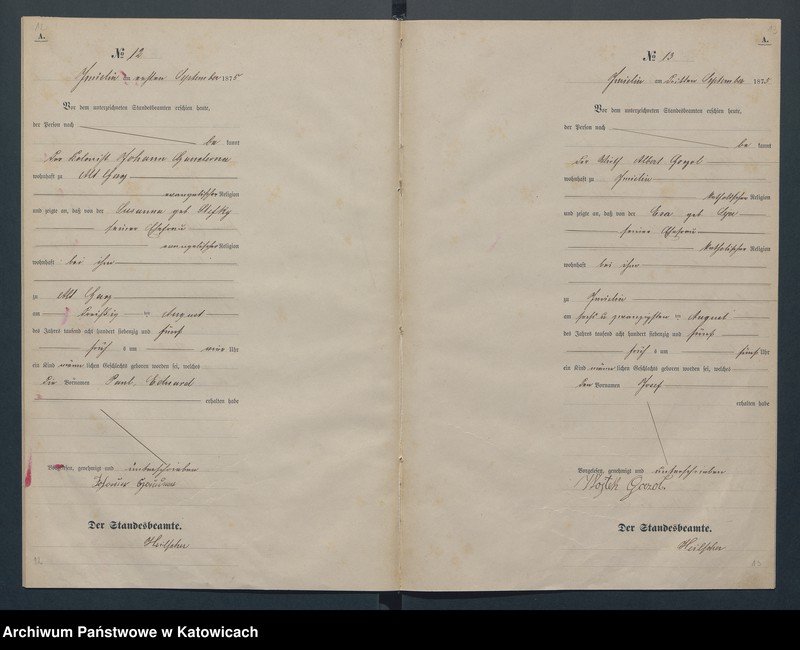 12
A.
№ 12
am ersten September 1875
Vor dem unterzeichneten Standesbeamten erschien heute,
der Person nach
be kannt
Der Kolonist Johann
wohnhaft zu Alt
evangelischer Religion
und zeigte an, daß von der Susanna geb
seiner Ehefrau
evangelischer Religion
wohnhaft bei ihm
zu Alt
am dreißig ten August
des Jahres tausend acht hundert siebenzig und fünf
früh um vier Uhr
ein Kind männlichen Geschlechts geboren worden sei, welches
die Vornamen Paul, Eduard
erhalten habe
Vorgelesen, genehmigt und unterschrieben
Der Standesbeamte.
12
13
A.
№ 13
am dritten September 1875
Vor dem unterzeichneten Standesbeamten erschien heute,
der Person nach
be kannt
Der Wirth Albert
wohnhaft zu
katholischer Religion
und zeigte an, daß von der Eva geb
seiner Ehefrau
katholischer Religion
wohnhaft bei ihm
zu
am sechs u zwanzigsten August
des Jahres tausend acht hundert siebenzig und fünf
früh um fünf Uhr
ein Kind männlichen Geschlechts geboren worden sei, welches
den Vornamen Josef
erhalten habe
Vorgelesen, genehmigt und unterschrieben
Wojtek
Der Standesbeamte.
13
Archiwum Państwowe w Katowicach